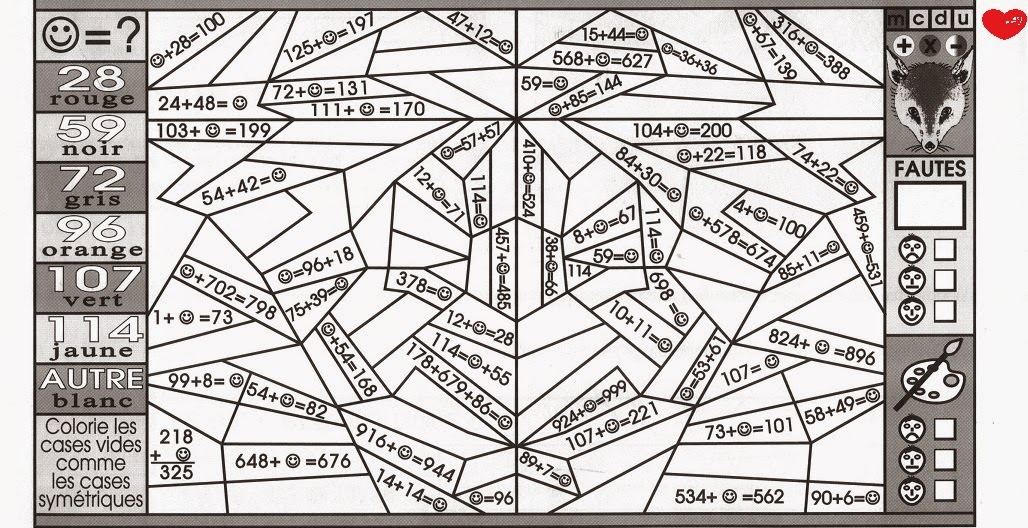 ☺=?
28
rouge
59
noir
72
gris
96
orange
107
vert
114
jaune
AUTRE
blanc
Colorie les
cases vides
comme
les cases
symétriques
☺+28=100
125+☺=197
47+12=☺
15+44=☺
568+☺=627
☺=36+36
☺+67=139
316+☺=388
24+48=☺
72+☺=131
111+☺=170
59=☺
☺+85=144
103+☺=199
☺=57+57
410+☺=524
104+☺=200
☺+22=118
74+22=☺
84+30=☺
54+42=☺
12+☺=71
114=☺
8+☺=67
114=☺
4+☺=100
☺+578=674
459+☺=531
☺=96+18
457+☺=485
38+☺=66
59=☺
114
85+11=☺
☺+702=798
75+39=☺
378=☺
698=☺
1+☺=73
12+☺=28
10+11=☺
☺+54=168
114=☺+55
178+679+86=☺
☺=53+61
824+☺=896
107=☺
99+8=☺
54+☺=82
924+☺=999
107+☺=221
58+49=☺
73+☺=101
218
+☺
325
648+☺=676
916+☺=944
14+14=☺
☺=96
89+7=☺
534+☺=562
90+6=☺
m c d u
+ x -
FAUTES